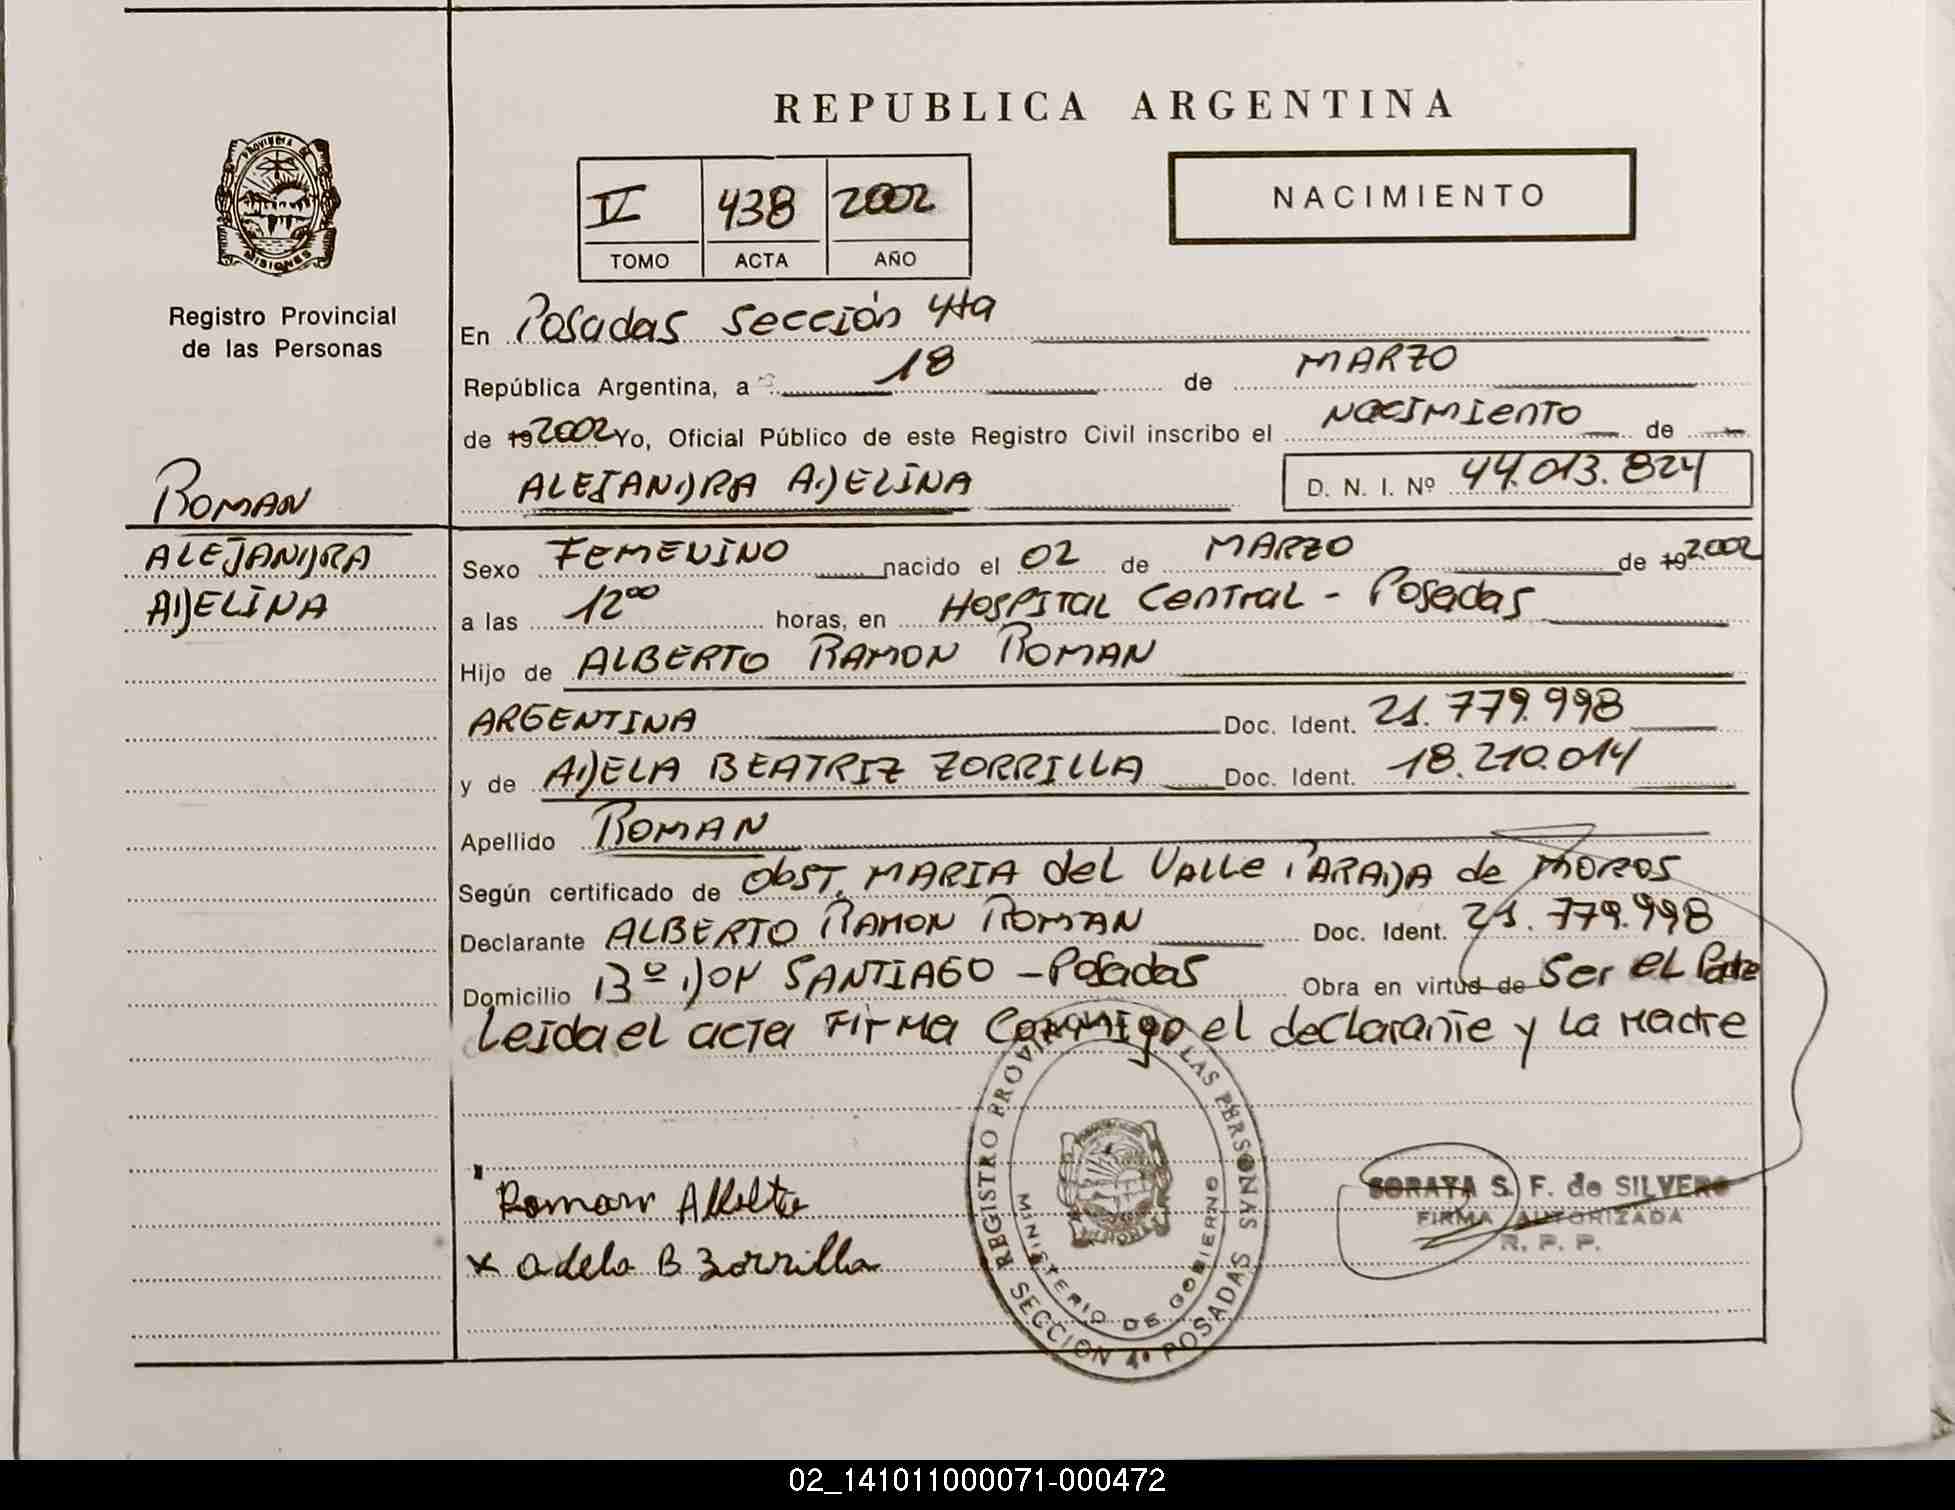 REPUBLICA ARGENTINA
PROVINCIA DE
MISIONES
Registro Provincial
de las Personas
IV 438 2002
TOMO ACTA AÑO
NACIMIENTO
En Posadas Sección 4ta
República Argentina, a 18 de MARZO
de 19 2002 Yo, Oficial Público de este Registro Civil inscribo el NACIMIENTO de
ALEJANDRA ADELINA D. N. I. Nº 44.013.824
ROMAN
ALEJANDRA
ADELINA
Sexo FEMENINO nacido el 02 de MARZO de 19 2002
a las 12⁰⁰ horas, en HOSPITAL CENTRAL - Posadas
Hijo de ALBERTO RAMON ROMAN
ARGENTINA Doc. Ident. 21.779.998
y de ADELA BEATRIZ ZORRILLA Doc. Ident. 18.210.014
Apellido ROMAN
Según certificado de Obst. MARIA del VALLE PARADA de MOROS
Declarante ALBERTO RAMON ROMAN Doc. Ident. 21.779.998
Domicilio Bº DON SANTIAGO - Posadas Obra en virtud de Ser el Padre
Leida el acta Firma Conmigo el declarante y La Madre
Roman Alberto
x adela B Zorrilla
REGISTRO PROVINCIAL DE LAS PERSONAS
MINISTERIO DE GOBIERNO
SECCION 4ª POSADAS
SORAYA S. F. de SILVERO
FIRMA AUTORIZADA
R. P. P.
02_141011000071-000472